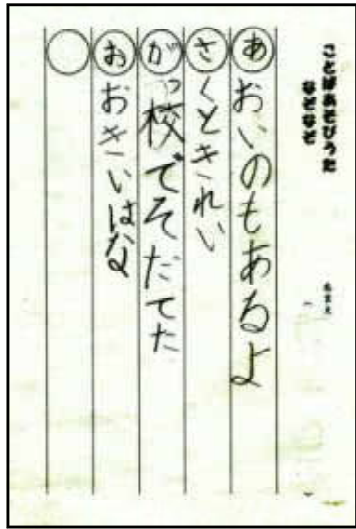 ことばあそびうた
なぞなぞ
なまえ
あおいのもあるよ
さくときれい
がっ校でそだてた
おおきいはな